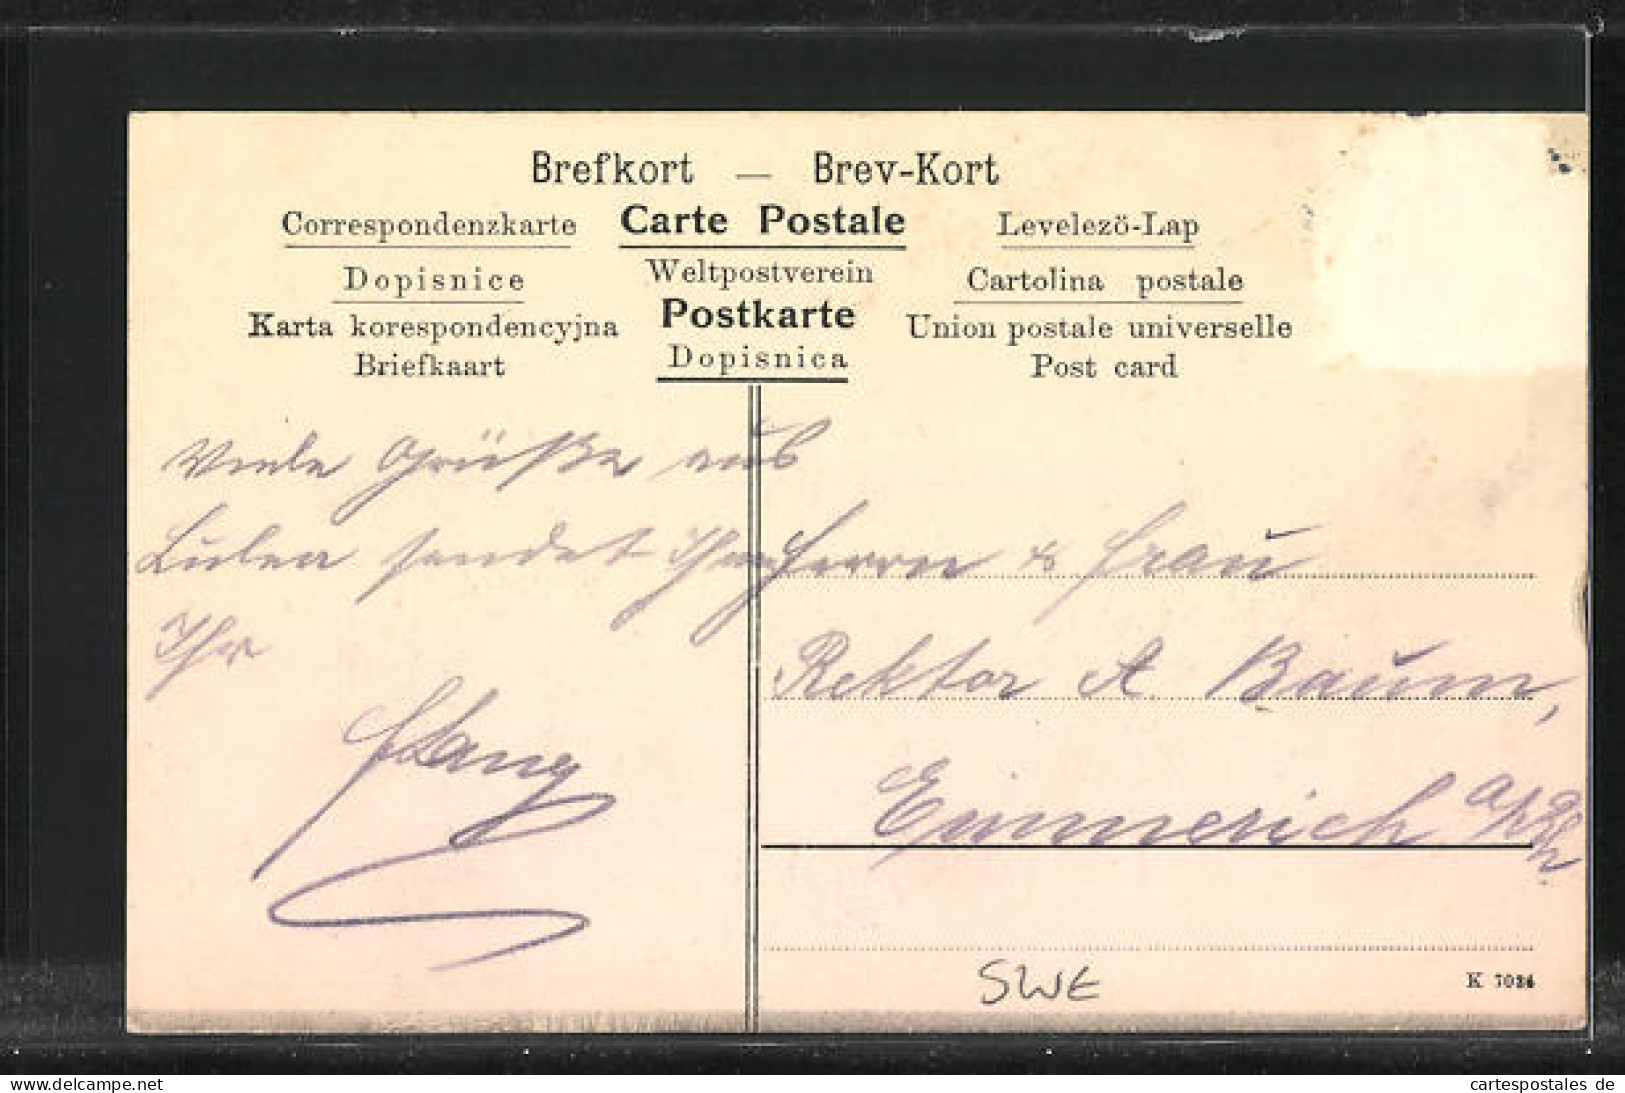 Brefkort — Brev-Kort
Correspondenzkarte Carte Postale Levelező-Lap
Dopisnice Weltpostverein Cartolina postale
Karta korespondencyjna Postkarte Union postale universelle
Briefkaart Dopisnica Post card
Viele Grüße aus
Lulea sendet Ihnen
Ihr
Lang
Herrn & Frau
Rektor A. Baum,
Emmerich a/Rh.
SWE
K 7024
www.delcampe.net
cartespostales de